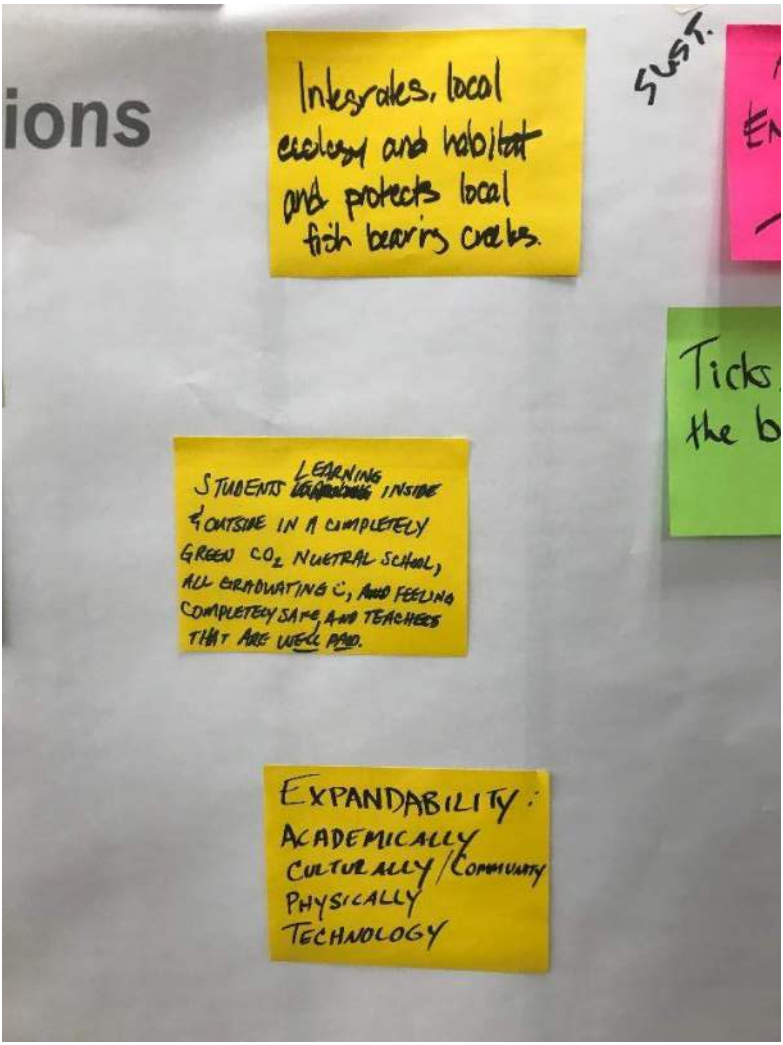 ions
Integrates, local
ecology and habitat
and protects local
fish bearing creeks.
SUST.
EN
Ticks
the b
LEARNING
STUDENTS INSIDE
& OUTSIDE IN A COMPLETELY
GREEN CO₂ NUETRAL SCHOOL,
ALL GRADUATING Ü, AND FEELING
COMPLETELY SAFE, AND TEACHERS
THAT ARE WELL PAID.
EXPANDABILITY:
ACADEMICALLY
CULTURALLY/COMMUNITY
PHYSICALLY
TECHNOLOGY